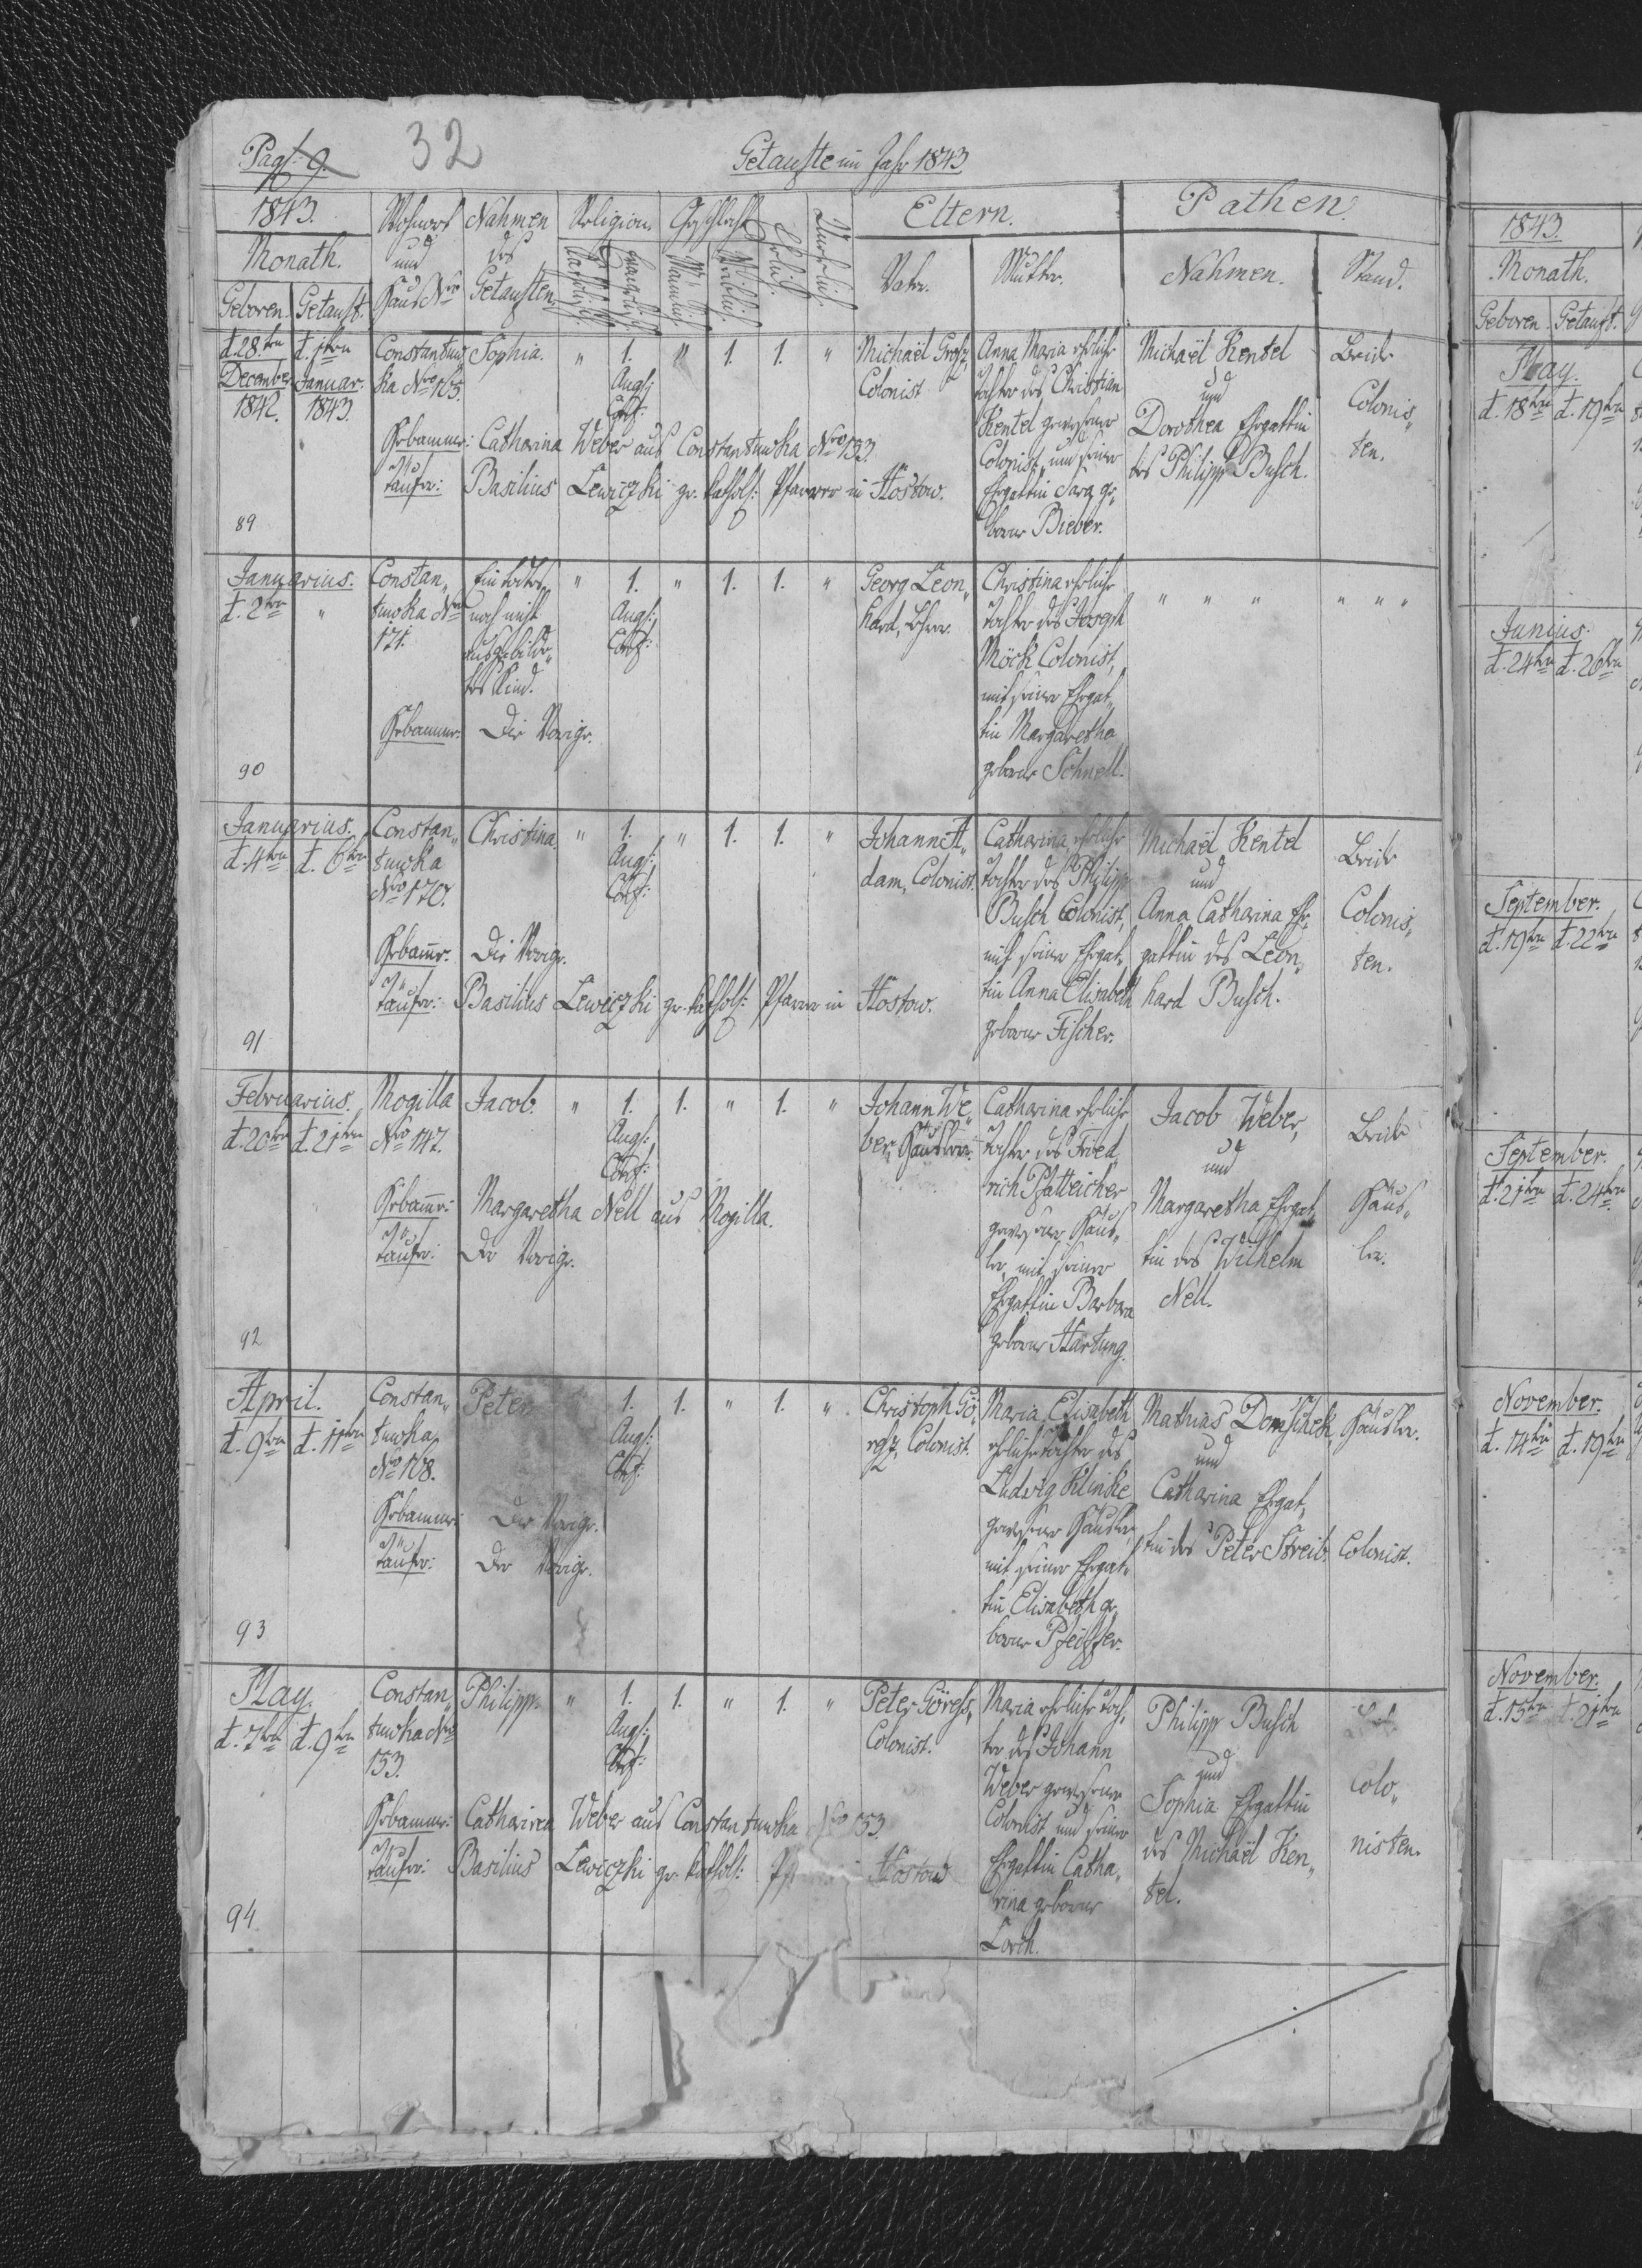 Pag: 9.
32
Getaufte im Jahr 1843
1843.
Monath.
Geboren. Getauft.
Wohnort
und
Haus Nro
Nahmen
des
Getauften.
Religion.
Katholisch.
Evangelisch.
Geschlecht
Mänlich.
Weiblich.
Ehelich.
Unehelich.
Eltern.
Vater.
Mutter.
Pathen.
Nahmen.
Stand.
d. 28ten
December
1842.
d. 1ten
Januar.
1843.
Constantuw
ka Nro 165.
Sophia.
" 1. " 1. 1. "
Augs:
Conf:
Michaël Groß,
Colonist
Anna Maria eheliche
Tochter des Christian
Kentel gewesener
Colonist, und seiner
Ehegattin Sara ge,,
borne Bieber.
Michaël Kentel
und
Dorothea Ehegattin
des Philipp Busch.
Beide
Colonis,,
ten.
Hebamme: Catharina Weber aus Constantuwka Nro 153.
Taufer: Basilius Lewiczki gr. kathol: Pfarrer in Hostow.
89
Januarius.
d. 2ten "
Constan,,
tuwka Nro
171.
Ein todtes
noch nicht
ausgebilde,,
tes Kind.
" 1. " 1. 1. "
Augs:
Conf:
Georg Leon,,
hard, Lehrer.
Christina eheliche
Tochter des Joseph
Möck Colonist,
mit seiner Ehegat,,
tin Margaretha
geborne Schnell.
" " "
" " "
Hebamme: Die Vorige.
90
Januarius.
d. 4ten d. 6ten
Constan,,
tuwka
Nro 170.
Christina.
" 1. " 1. 1. "
Augs:
Conf:
Johann A,,
dam, Colonist.
Catharina, eheliche
Tochter des Philipp
Busch Colonist,
mit seiner Ehegat,,
tin Anna Elisabeth
geborne Fischer.
Michaël Kentel
und
Anna Catharina Ehe,,
gattin des Leon,,
hard Busch.
Beide
Colonis,,
ten.
Hebame: Die Vorige.
Taufer: Basilius Lewiczki gr. kathol: Pfarrer in Hostow.
91
Februarius.
d. 20ten d. 21ten
Mogilla
Nro 147.
Jacob.
" 1. 1. " 1. "
Augs:
Conf:
Johann We,,
ber, Häusler.
Catharina eheliche
Tochter des Fried,,
rich Pfatteicher
gewesener Häus,,
ler, mit seiner
Ehegattin Barbara
geborne Hartung.
Jacob Weber,
und
Margaretha Ehegat,,
tin des Wilhelm
Nell.
Beide
Häus,,
ler.
Hebame: Margaretha Nell aus Mogilla.
Taufer: Der Vorige.
92
April.
d. 9ten d. 11ten
Constan,,
tuwka
Nro 168.
Peter
1. 1. " 1. "
Augs:
Conf:
Christoph Gö,,
rgß, Colonist.
Maria Elisabeth
eheliche Tochter des
Ludwig Klinke
gewesener Häusler,
mit seiner Ehegat,,
tin Elisabeth ge,,
borne Pfeiffer.
Mathias Domschek,
und
Catharina Ehegat,,
tin des Peter Streib.
Häusler.
Colonist.
Hebamme: Die Vorige.
Taufer: Der Vorige.
93
May.
d. 7ten d. 9ten
Constan,,
tuwka Nro
153.
Philipp.
" 1. 1. " 1. "
Augs:
Conf:
Peter Görgß,
Colonist.
Maria eheliche Toch,,
ter des Johann
Weber gewesener
Colonist und seiner
Ehegattin Catha,,
rina geborne
Lorch.
Philipp Busch
und
Sophia Ehegattin
des Michaël Ken,,
tel.
Colo,,
nisten.
Hebamme: Catharina Weber aus Constantuwka Nro 153.
Taufer: Basilius Lewiczki gr. kathol: Hostow
94
1843.
Monath.
Geboren. Getauft.
May.
d. 18ten d. 19ten
Junius.
d. 24ten d. 26ten
September.
d. 19ten d. 22ten
September.
d. 21ten d. 24ten
November.
d. 14ten d. 19ten
November.
d. 15ten d. 21ten